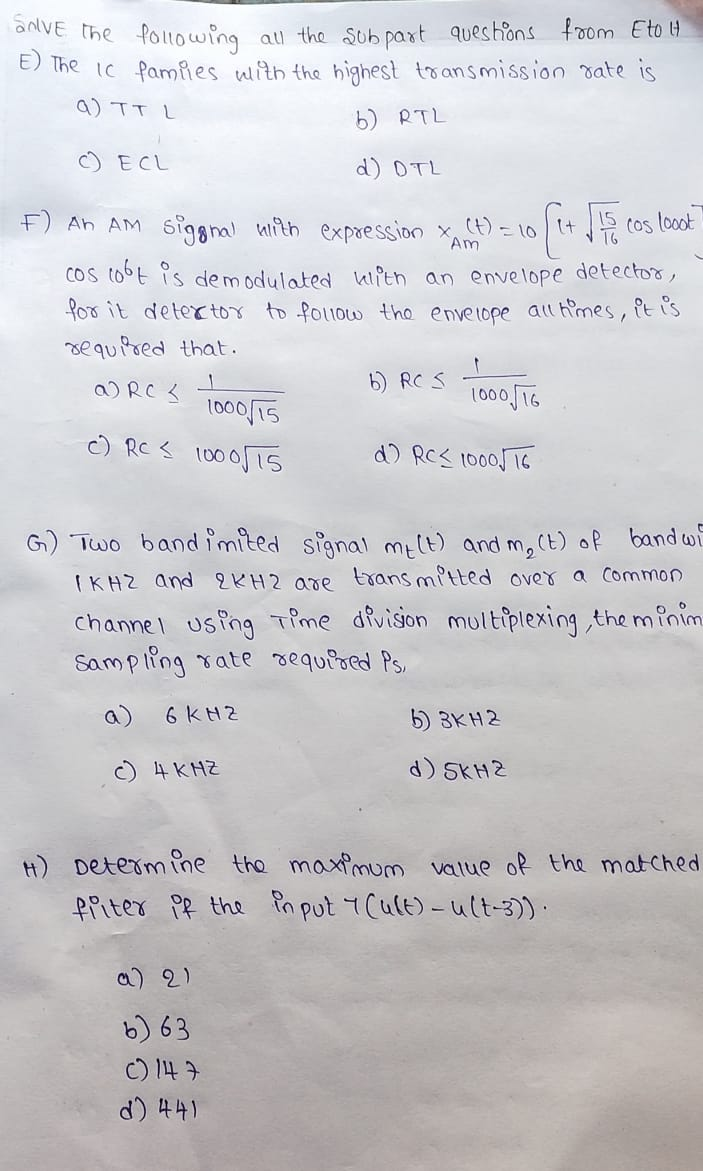 SOLVE The following all the Subpart questions from E to H
E) The IC families with the highest transmission rate is
a) TTL b) RTL
c) ECL d) DTL
F) An AM Siggnal with expression x_AM(t) = 10 [1 + √(15/16) cos 1000t]
cos 10^6t is demodulated with an envelope detector,
for it detector to follow the envelope all times, it is
required that.
a) RC ≤ 1/(1000√15) b) RC ≤ 1/(1000√16)
c) RC ≤ 1000√15 d) RC ≤ 1000√16
G) Two bandimited signal m_t(t) and m_2(t) of bandwi
1KHZ and 2KHZ are transmitted over a common
channel using Time division multiplexing, the minim
sampling rate required is,
a) 6KHZ b) 3KHZ
c) 4KHZ d) 5KHZ
H) Determine the maximum value of the matched
filter if the input 7(u(t) - u(t-3)).
a) 21
b) 63
c) 147
d) 441